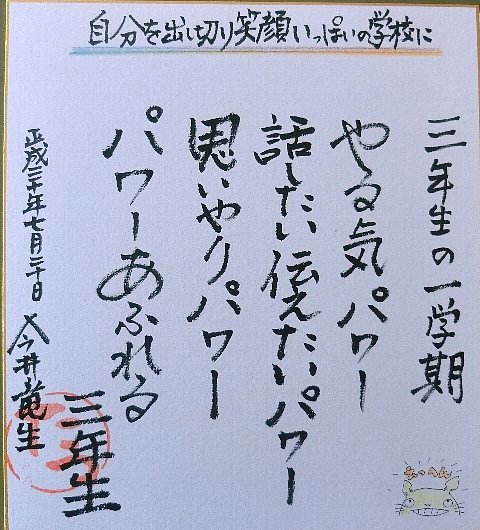 自分を出し切り笑顔いっぱいの学校に
三年生の一学期
やる気パワー
話したい伝えたいパワー
思いやりパワー
パワーあふれる
三年生
平成三十年七月二十日
今井竜生
えっへん